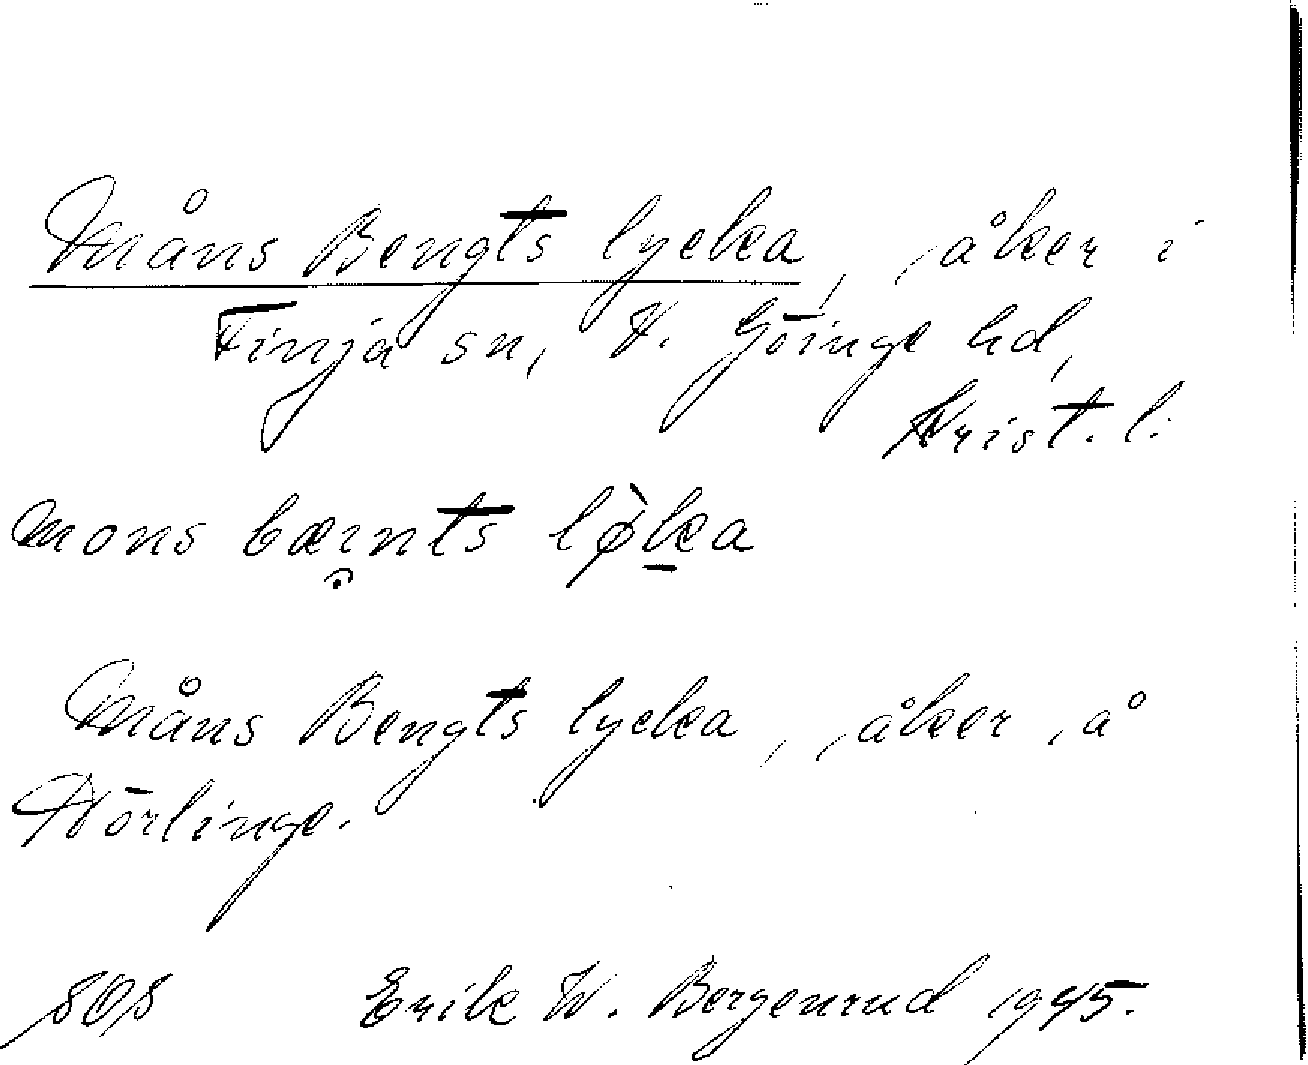 Måns Bengts lycka, åker i
Finja sn, V. Göinge hd,
Krist. l.
mons bæınts lø̀ka
Måns Bengts lycka, åker å
Hörlinge.
Erik W. Bergenrud 1945.